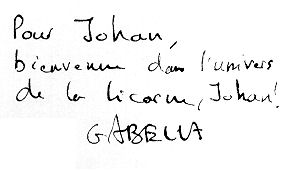 Pour Johan,
bienvenue dans l'univers
de la licorne, Johan!
GABELLA